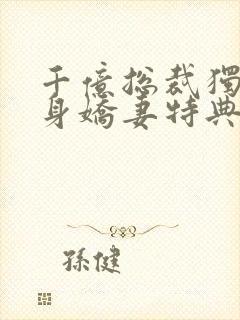 千億总裁獨
身嬌妻特典
孫健